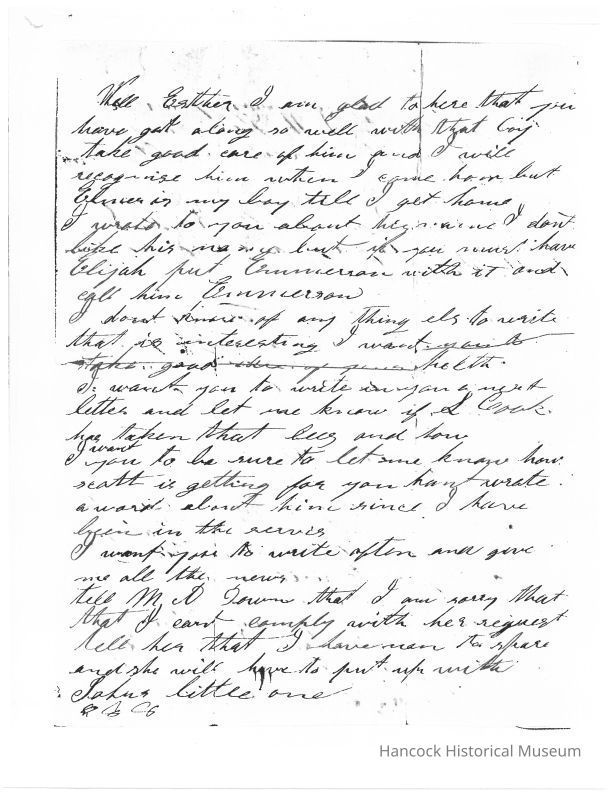 Well Esther I am glad to here that you
have got along so well with that boy
take good care of him and I will
recognise him when I come hom but
Elmer is my boy till I get home
I wrote to you about his name I dont
like his name but if you must have
Elijah put Emmerson with it and
call him Emmerson
I dont know of any thing els to write
that is interesting I want you to
take good care of your helth
I want you to write in you a next
letter and let me know if S Cook
has taken that and how
I want you to be sure to let me know how
scott is getting for you hant wrote
a word about him since I have
been in the servis
I want you to write often and give
me all the news
tell M A Town that I am sorry that
that I cant comply with her request
tell her that I have non to spare
and she will have to put up with
Johns little one
Hancock Historical Museum